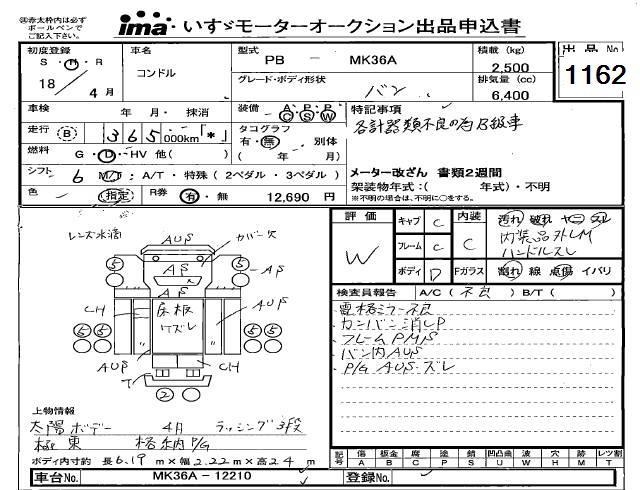 ㊟赤太枠内は必ず
ボールペンで
ご記入下さい。
ima いすゞモーターオークション出品申込書
初度登録
S・H・R
18 / 4月
車名
コンドル
型式
PB － MK36A
グレード・ボディ形状
バン
積載 (kg)
2,500
排気量 (cc)
6,400
出品 No
1162
車検 年 月・抹消
走行 (B) 365,000km「*」
燃料 G・D・HV 他( )
シフト 6 M/T・A/T・特殊（2ペダル・3ペダル）
色 (指定) R券 有・無 12,690 円
装備 A/C P/S P/W
タコグラフ 別体
有・無( 年 月)
特記事項
各計器類不良の為B級車
メーター改ざん 書類2週間
架装物年式:( 年式)・不明
※不明の場合は、不明に○をする。
評価 W
キャブ C
フレーム C
ボディ D
内装 C
Fガラス
汚れ 破れ ヤニ スレ
内装品外しM
ハンドルスレ
割れ 線 点傷 イバリ
検査員報告 A/C( 不良 ) B/T( )
電格ミラー不良
カンバン消しP
フレームPMS
バン内AUS
P/G AUS・ズレ
レンズ水滴
AUS
カバー欠
AS
AS
AP
CH
床板
ワズレ
AUS
AUS
T
CH
5 5
5 5 5 5
2
上物情報
太陽ボデー 4月 ラッシング3段
極東 格納P/G
ボディ内寸約 長6.19 m×幅2.22m×高2.4 m
記号 傷 A 板金 B 腐 C 塗 P 錆 S 凹凸曲 U 波 W 穴 H 跡 M レツ割 T
車台No. MK36A－12210
登録No.